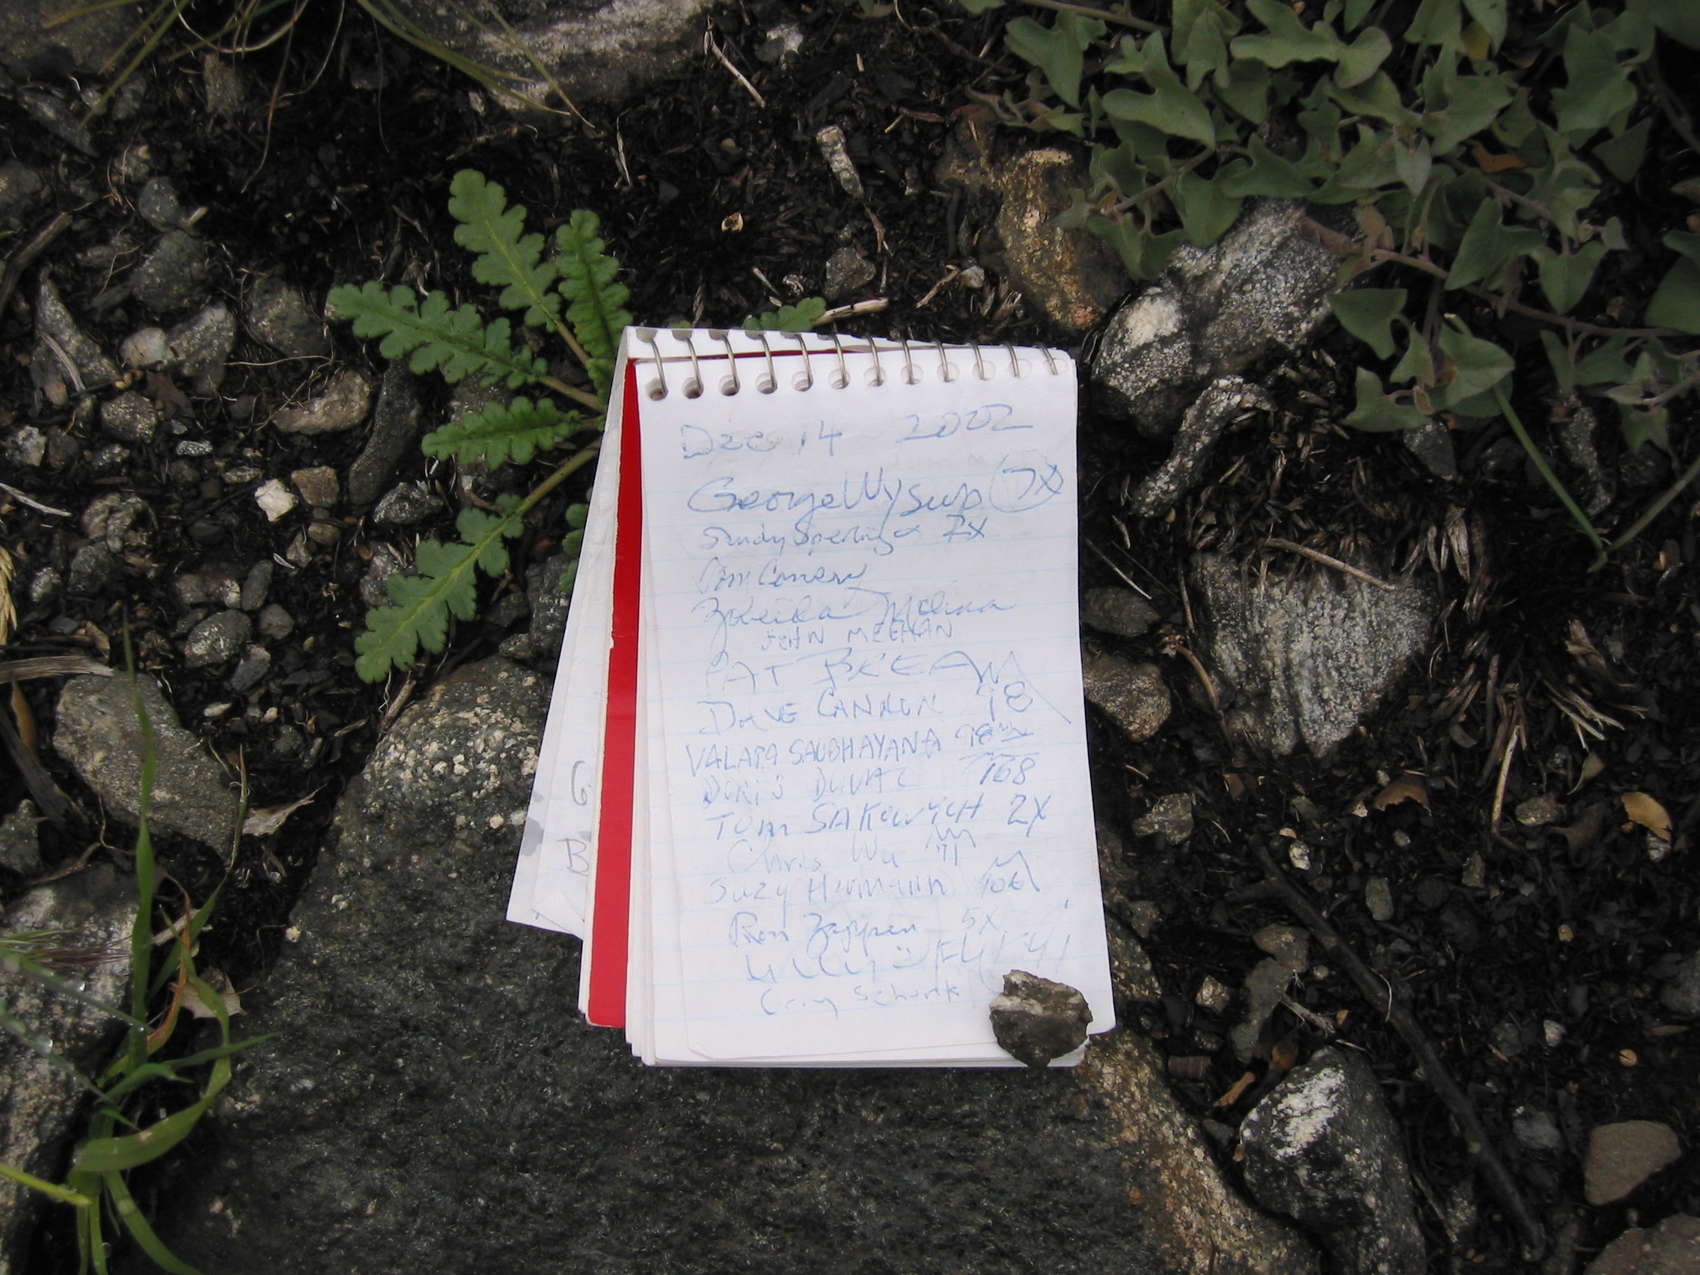 Dec 14 2002
George Wysup 7X
Sandy Sperling 2X
Zobeida Molina
JOHN MEEHAN
PAT BREEN
DAVE CANNON 98
VALARA SAUBHAYANA 98
DORIS DUVAL 168
TOM SAKOWICH 2X
Chris Wu 71
Suzy Hermann 106
Ron Zappen 5X
Craig Schunk
G
B